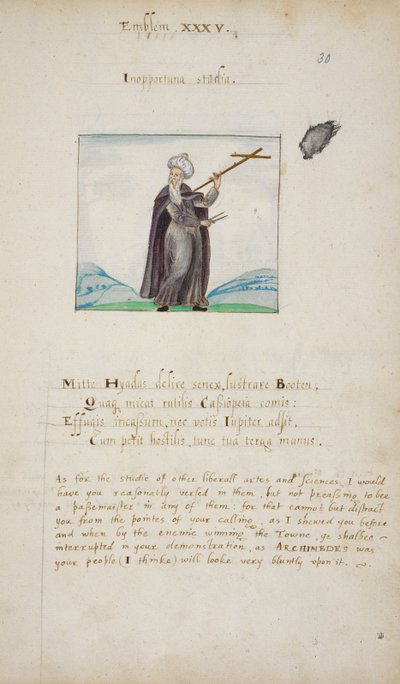 Emblem. XXXV.
30
Inopportuna studia.
Mitte Hyadas delire senex, lustrare Booten,
Quaq micat rutilis Cassiopeia comis:
Effugis incassum, nec votis Iupiter adsit,
Cum petit hostilis, tunc tua terga manus.
As for the studie of other liberall artes and sciences, I would
have you reasonably versed in them, but not preassing to bee
a passemaister in any of them: for that cannot but distract
you from the pointes of your calling, as I shewed you before
and when by the enemie winning the Towne, ye shalbee
interrupted in your demonstration, as ARCHIMEDES was
your people (I thinke) will looke very bluntly upon it.